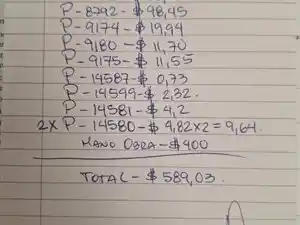 P-8792-$98,45
P-9174-$19,94
P-9180-$11,70
P-9175-$11,55
P-14587-$0,73
P-14599-$2,32.
P-14581-$4,2
2x P-14580-$4,82x2=9,64.
MANO OBRA-$400
TOTAL-$589,03.